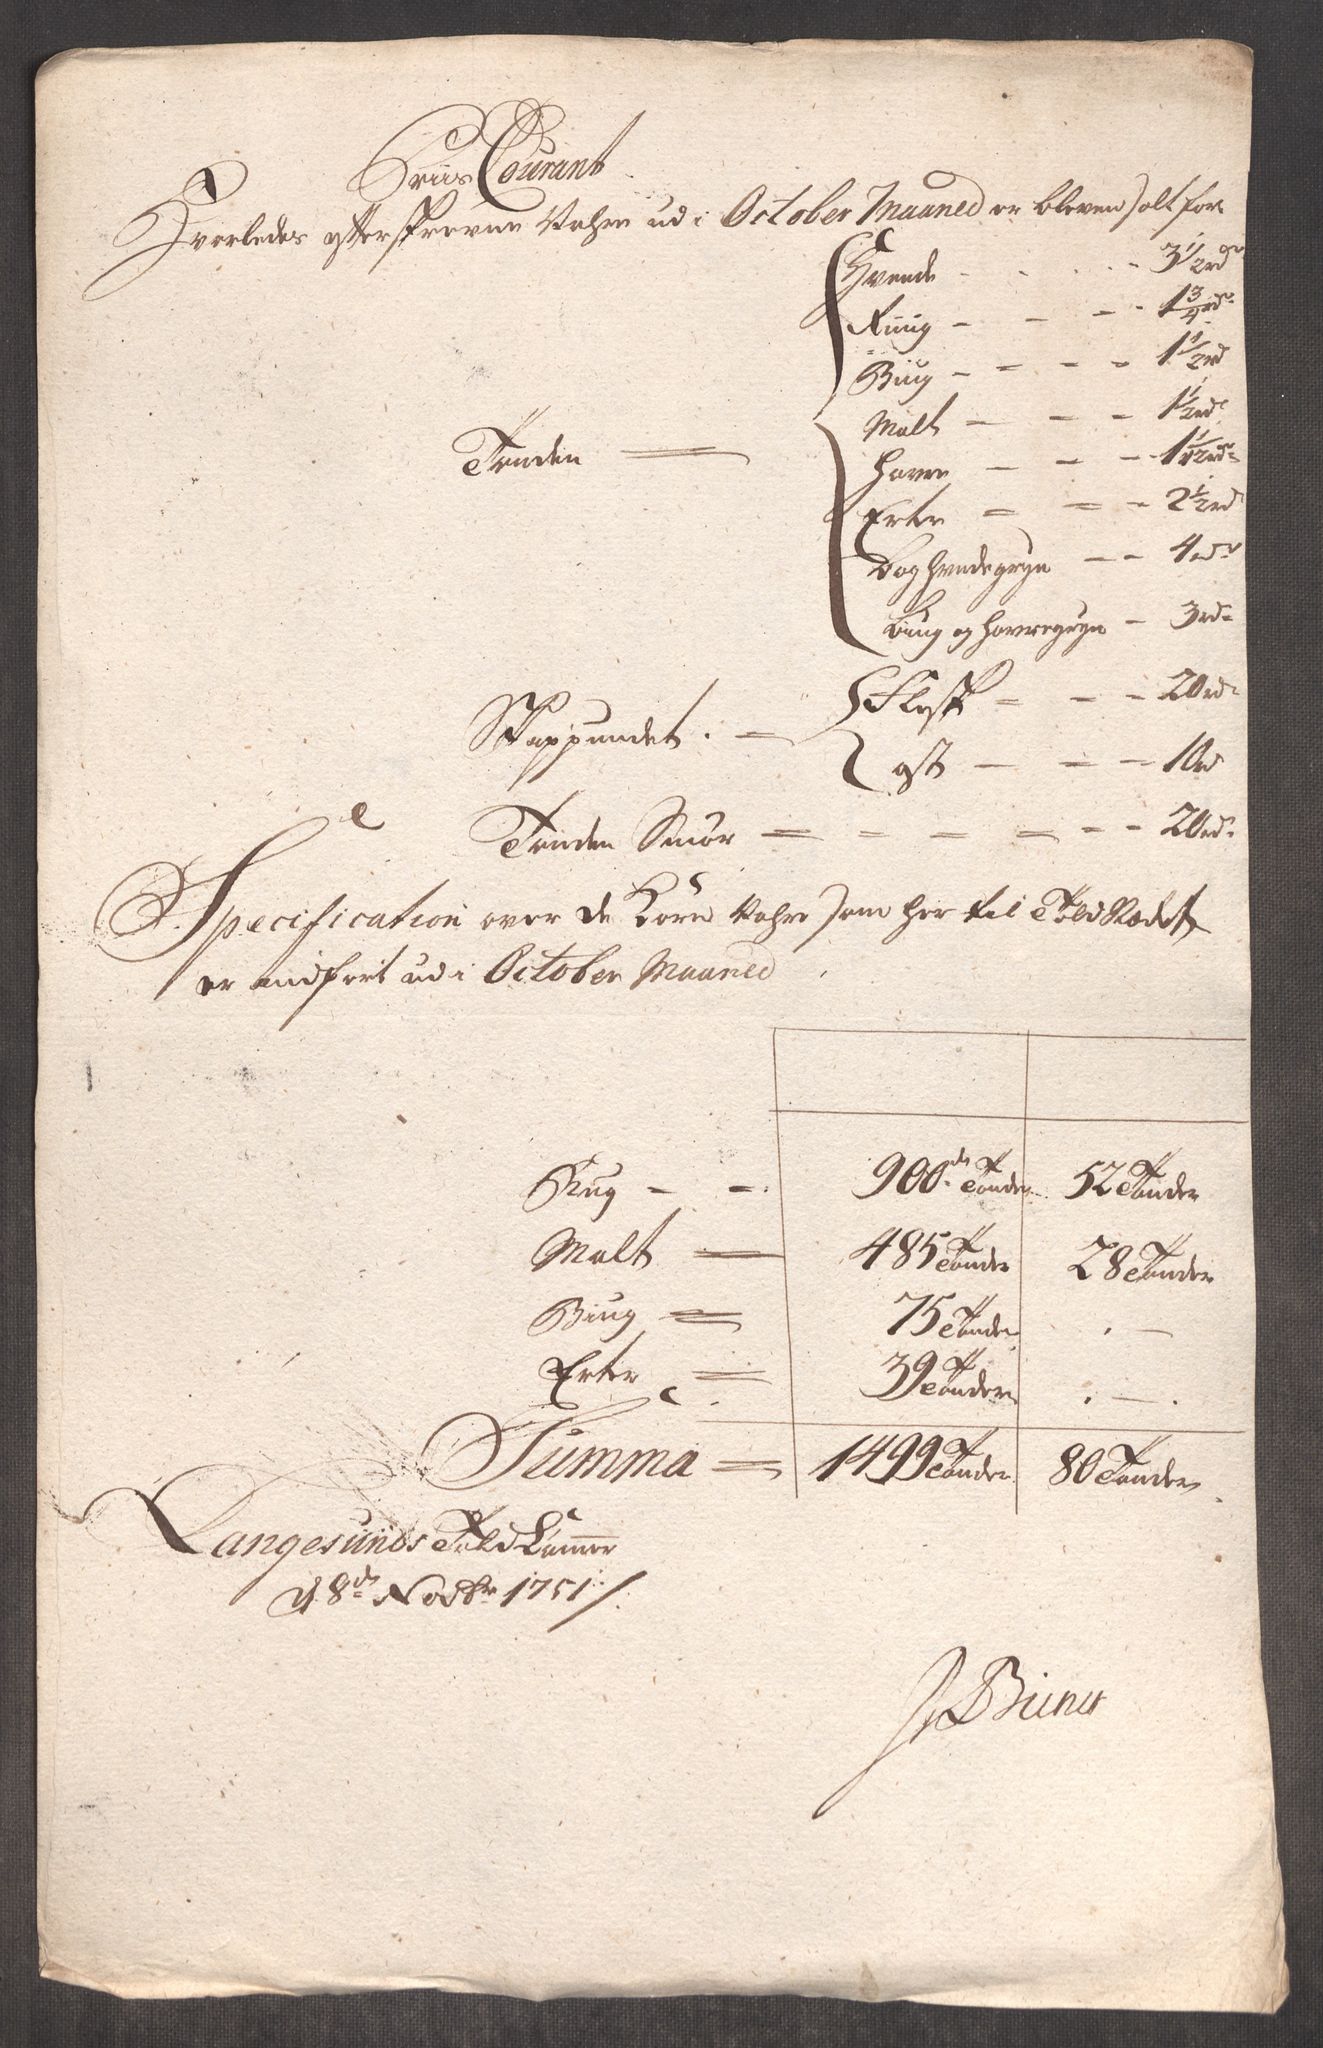 Priis Courant
Hvorledes efterskrevne Vahre udi October Maaned er bleven solt for
Hvede - - - - 3 1/2 rdr
Ruug - - - - 1 3/4 rdr
Biug - - - - 1 1/2 rd
Malt - - - 1 1/2 rdr
Tønden = Havre - - - 1 1/2 rdr
Erter = = - 2 1/2 rd
Boghvedegryn - - 4 rdr
Biug og Havregryn - 3 rdr
Skippundet. = Flesk - - - 20 rdr
Ost - - - 10 rd
Tønden Smør = - - - - - 20 rdr
Specification over de Korn Vahre som her til Told Stædet
er indført udi October Maaned
Rug - - 900de Tønder 52 Tønder
Malt = 485 Tønder 28 Tønder
Biug = 75 Tønder . —
Erter = 39 Tønder . — .
Summa = 1499 Tønder 80 Tønder
Langesunds Told Kammer
d 8de Novbr 1751 /.